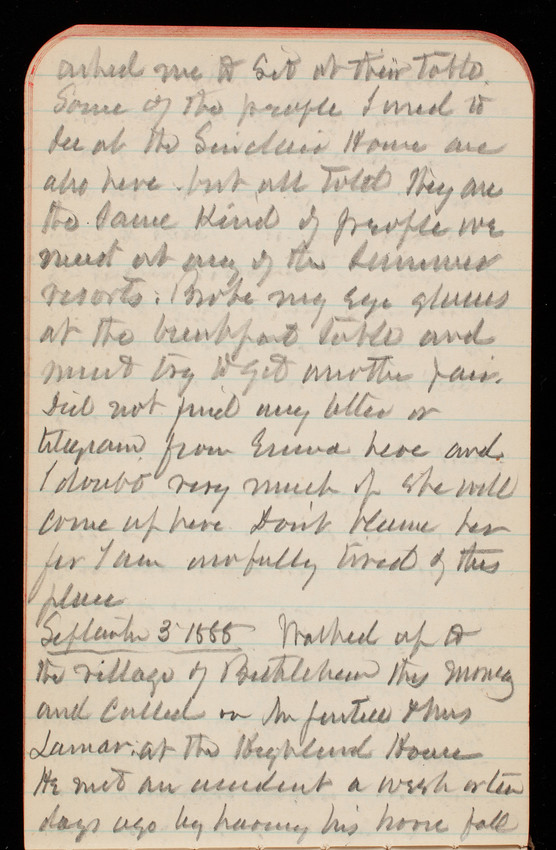 asked me to sit at their table.
Some of the people I used to
see at the Sinclair House are
also here but all told they are
the same kind of people we
meet at any of the summer
resorts. Broke my eye glasses
at the breakfast table and
must try to get another pair.
Did not find any letter or
telegram from Emma here and
I doubt very much if she will
come up here Don't blame her
for I am awfully tired of this
place
September 3 1888 Walked up to
the village of Bethlehem this morng
and called on Mr Justice & Mrs
Lamar. at the Highland House
He met an accident a week or ten
days ago by having his horse fall